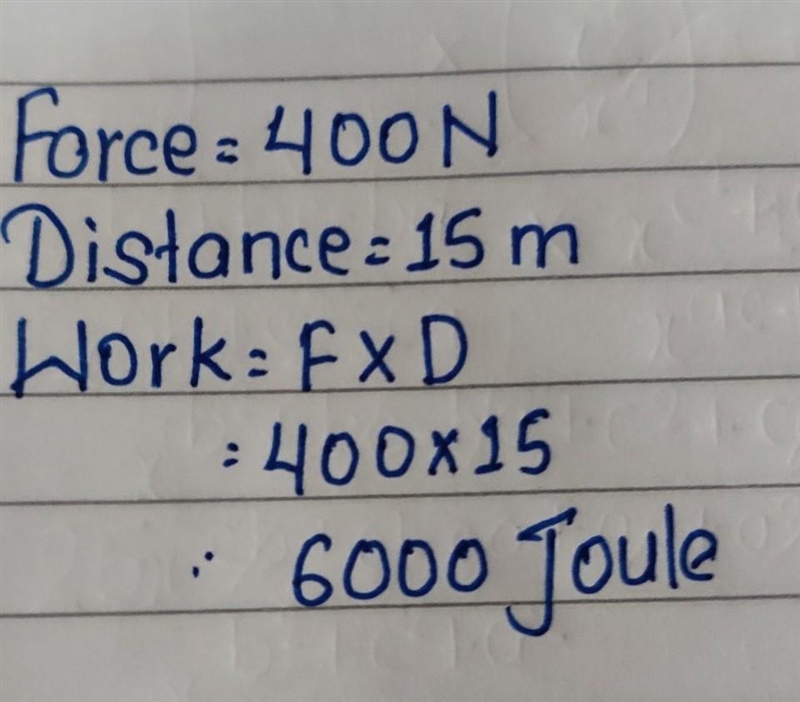 Force = 400 N
Distance = 15 m
Work = F x D
= 400 x 15
∴ 6000 Joule